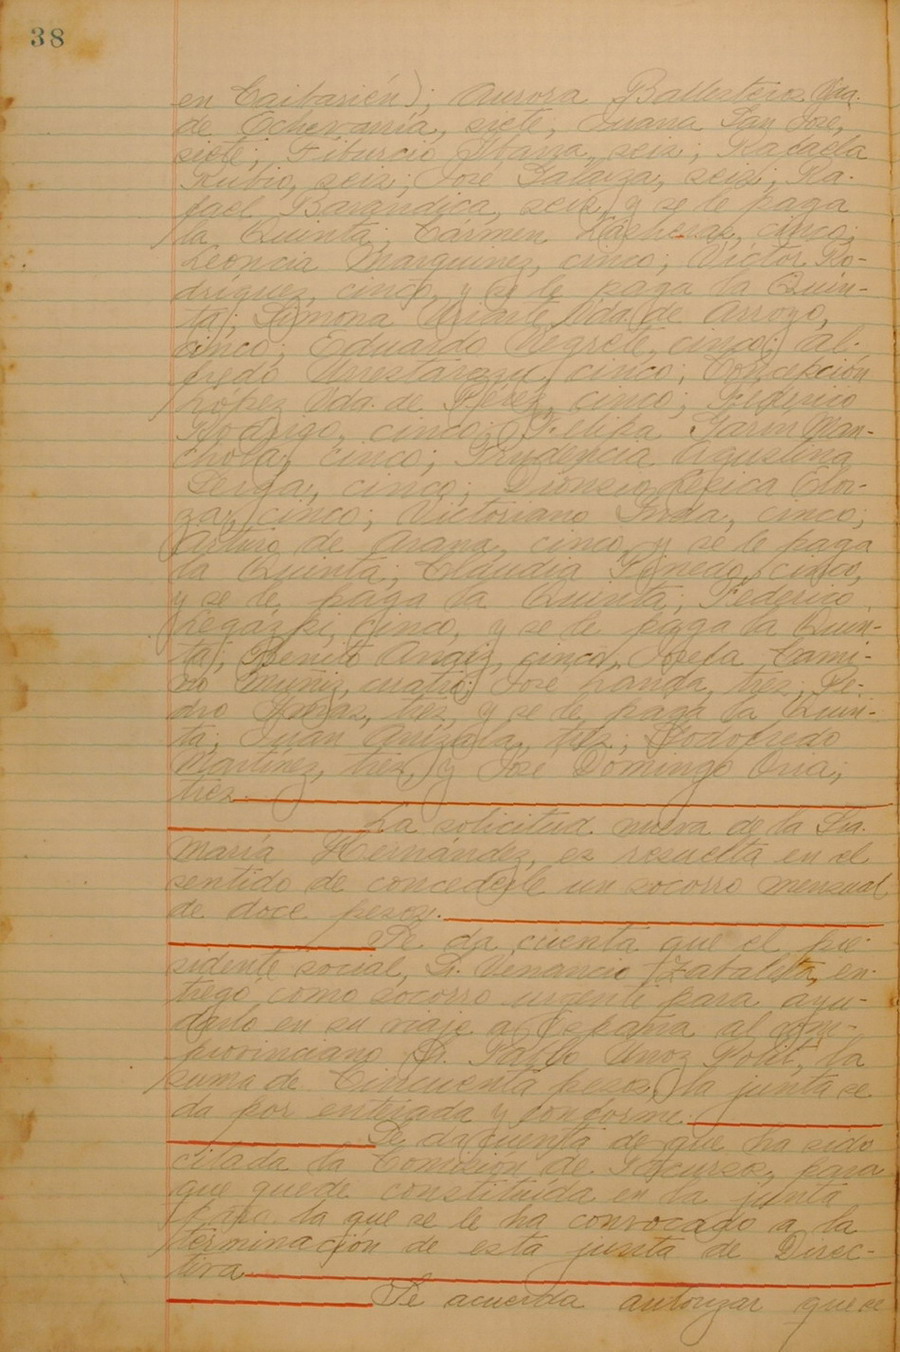 38
en Caibarién); Aurora Ballesteros Vda.
de Echevarría, siete; Juana San José,
siete; Tiburcio Ibarra, seis; Rafaela
Rubio, seis; José Galarza, seis; Ra-
fael Barandica, seis, y se le paga
la Quinta; Carmen cinco;
Leoncia Marquinez, cinco; Victor Ro-
driguez, cinco, y se le paga la Quin-
ta; Simona Vda. de Arroyo,
cinco; Eduardo Negrete, cinco; Al-
fredo Urrestarazu, cinco; Concepción
Lopez Vda. de Pérez, cinco; Federico
Rodrigo, cinco; Felipa
cinco; Prudencia Agustina
cinco; Dionisio
cinco; Victoriano cinco;
Arturo de Arana, cinco, y se le paga
la Quinta; Claudia Pinedo, cinco,
y se le paga la Quinta; Federico
Legazpi, cinco, y se le paga la Quin-
ta; Benito cinco, Josefa Cami-
no Muñiz, cuatro; José Landa, tres; Pe-
dro tres, y se le paga la Quin-
ta; Juan tres; Godofredo
Martinez, tres, y José Domingo Oria,
tres.
La solicitud nueva de la Sra.
María Hernández, es resuelta en el
sentido de concederle un socorro mensual
de doce pesos.
Se da cuenta que el pre-
sidente social, Sr. Venancio Zabaleta, en-
tregó como socorro urgente para ayu-
darlo en su viaje a España al com-
provinciano Sr. Pablo la
suma de Cincuenta pesos, la junta se
da por enterada y conforme.
Se da cuenta de que ha sido
citada la Comisión de para
que quede constituída en la junta
para la que se le ha convocado a la
terminación de esta junta de Direc-
tiva
Se acuerda autorizar que se